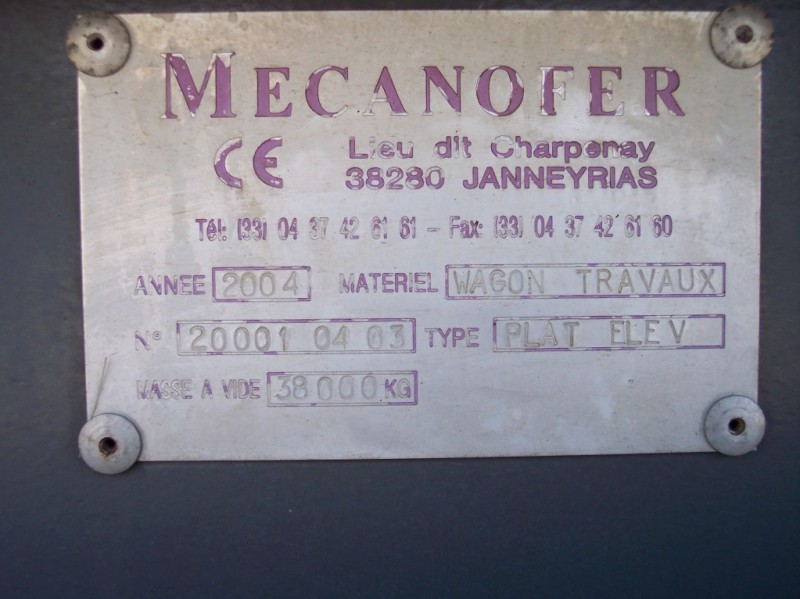 MECANOFER
CE Lieu dit Charpenay
38280 JANNEYRIAS
Tél: (33) 04 37 42 61 61 - Fax: (33) 04 37 42 61 60
ANNEE 2004 MATERIEL WAGON TRAVAUX
N° 20001 04 03 TYPE PLAT ELEV
MASSE A VIDE 38000 KG